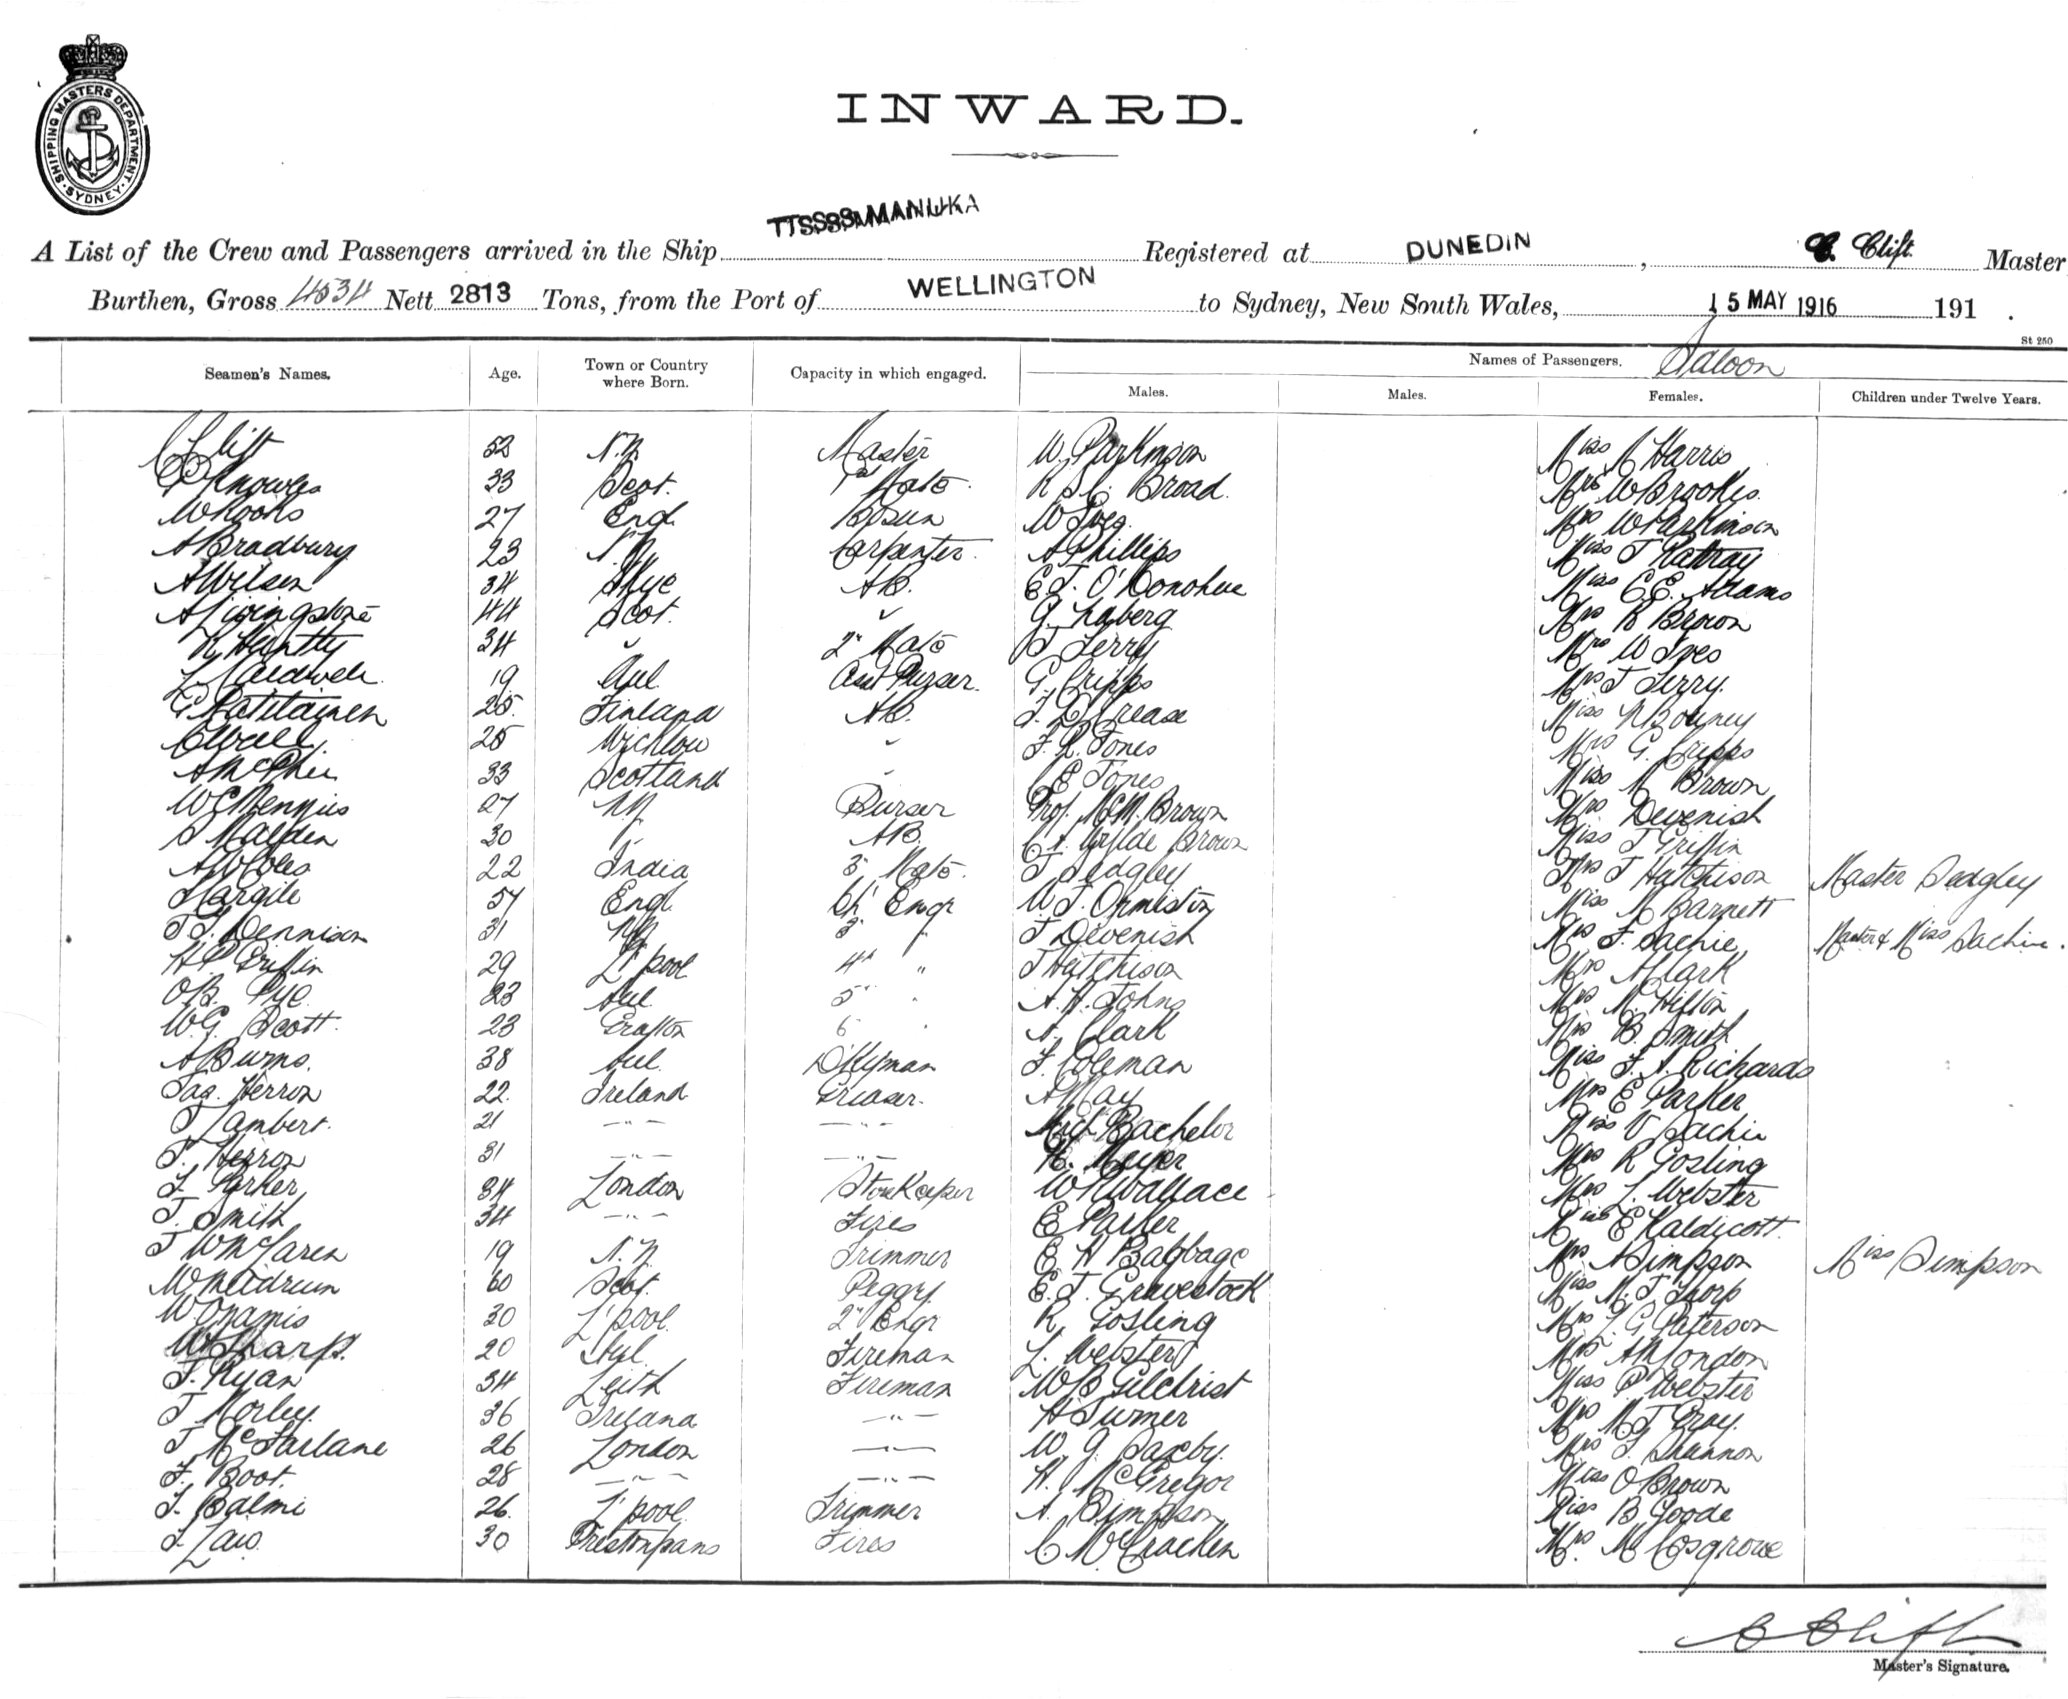 SHIPPING MASTERS DEPARTMENT
SYDNEY
INWARD.
A List of the Crew and Passengers arrived in the Ship MANUKA Registered at DUNEDIN, C. Clift. Master
Burthen, Gross 4534 Nett 2813 Tons, from the Port of WELLINGTON to Sydney, New South Wales, 15 MAY 1916 191 .
St 250
Names of Passengers. Saloon
Seamen's Names. Age. Town or Country where Born. Capacity in which engaged. Males. Males. Females. Children under Twelve Years.
C Clift 52 N.Z. Master W. Parkinson Miss M Harris
Knowles 33 Scot. 1st Mate R St C. Broad. Mrs W Brookes.
W Rooks 27 Engl. Bosun W Ives. Mrs W Parkinson
A Bradbury 23 N.Z. Carpenter. A Phillips Miss J Rattray
A Wilson 34 Skye AB. E.J. O'Donohue Miss C.E. Adams
A Livingstone 44 Scot. " G. Mrs R Brown
34 " 2" Mate J Terry Mrs W Ives
L Caldwell 19 Aul. Asst Purser. G. Cripps Mrs J Terry.
G 25. Finland AB. Crease Miss
C Wall. 25 Wicklow " F. R. Jones Mrs G. Cripps
A McPhee 33 Scotland " E Jones Miss M Brown
W E Mennies 27 N.Z. Purser Prof. M. Brown Mrs Devenish
S Malden 30 " AB. Wylde Brown Miss J Griffin
A W Coles 22 India 3" Mate. J Sedgley Mrs J Hutchison Master Sedgley
Cargile 57 Engl. Ch' Engr W.J. Ormiston Miss M Barnett
T.J. Dennison 31 N.Z. 3" " J Devenish Mrs F. Sachie Master & Miss Sachie.
H P Griffin 29 L'pool 4" " J Hutchison Mrs A Clark
O.B. Pye. 23 Aul. 5" " A. H. Johns Mrs M. Hilton
W.G. Scott. 23 Grafton 6 " A. Clark Mrs B. Smith
A Burns. 38 Aul. D'Kyman F. Coleman Miss F. A. Richards
Jas. Herron 22. Ireland Greaser. A May Mrs E Parker
J Lambert. 21 -"- -"- Bachelor Miss V Sachie
J. Herron 31 -"- -"- H. Meyer Mrs R Gosling
J. Parker 34 London Storekeeper W R Wallace Mrs L. Webster
J. Smith 34 -"- Fires E Parker Miss E Kaldicott.
J W McLaren 19 N.Z. Trimmer E H Babbage Mrs A Simpson Miss Simpson
W Meldrum 60 Scot. Peggy. E. J. Gravestock Miss M. J Thorp
W Oramis 30 L'pool. 2" Engr R. Gosling Mrs L G Paterson
W Sharp. 20 Aul. Fireman L. Webster Mrs A M London
J. Ryan 34 Leith Fireman W B Gilchrist Miss P Webster
J Morley. 36 Ireland -"- H Turner Mrs M. J Gray.
J McFarlane 26 London -"- W. G. Saxby. Mrs J. Shannon
F. Boot. 28 -"- -"- H. McGregor Miss O Brown
J. Balmi 26. L'pool. Trimmer A. Simpson Miss B Goode
J. Law. 30 Prestonpans Fires C McCracken Mrs. M Cosgrove
C Clift
Master's Signature.